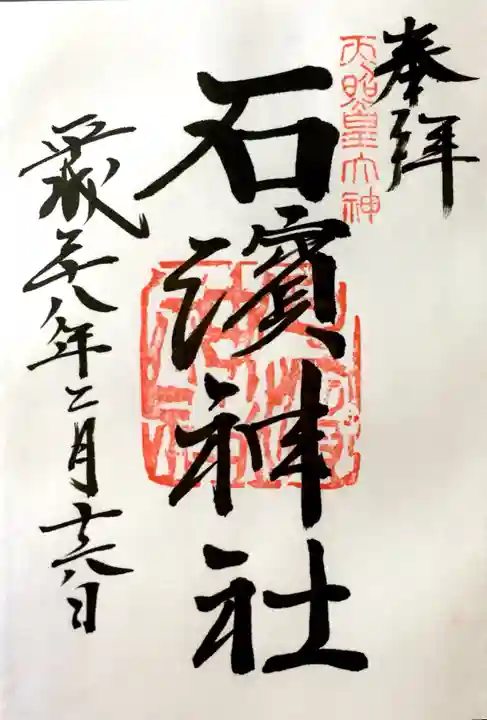 奉拜
天照皇大神
石濱神社
平成二十八年二月十六日